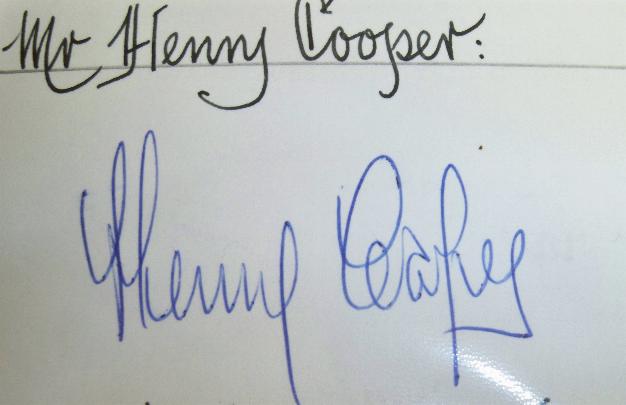 Mr Henry Cooper:
Henry Cooper